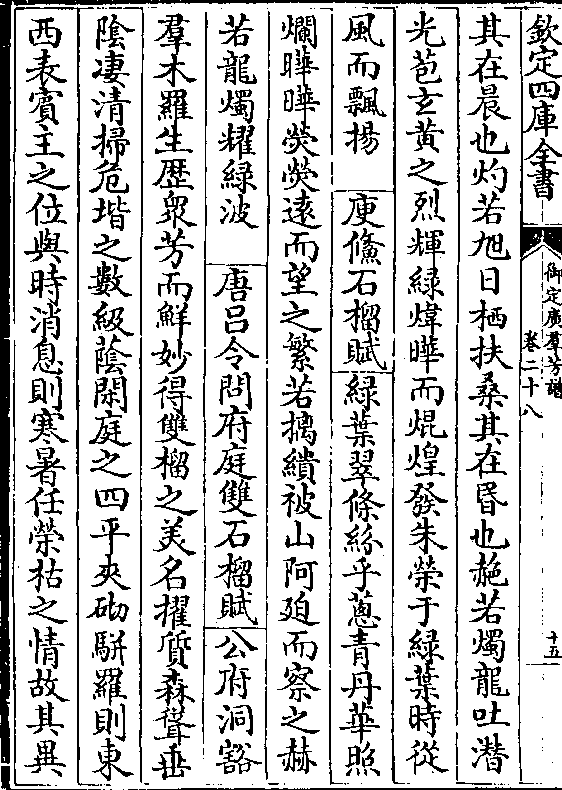 欽定四庫全書
御定廣羣芳譜
卷二十八
十五
其在晨也灼若旭日栖扶桑其在昏也赩若燭龍吐潛
光苞玄黃之烈輝綠煒曄而焜煌發朱榮于綠葉時從
風而飄揚 庾儵石榴賦 綠葉翠條紛乎蔥青丹華照
爛曄曄熒熒遠而望之繁若摛繢被山阿廹而察之赫
若龍燭耀綠波 唐呂令問府庭雙石榴賦 公府洞豁
羣木羅生歷衆芳而鮮妙得雙榴之美名擢質森聳垂
陰凄清掃危堦之數級蔭閑庭之四平夾砌駢羅則東
西表賓主之位與時消息則寒暑任榮枯之情故其異